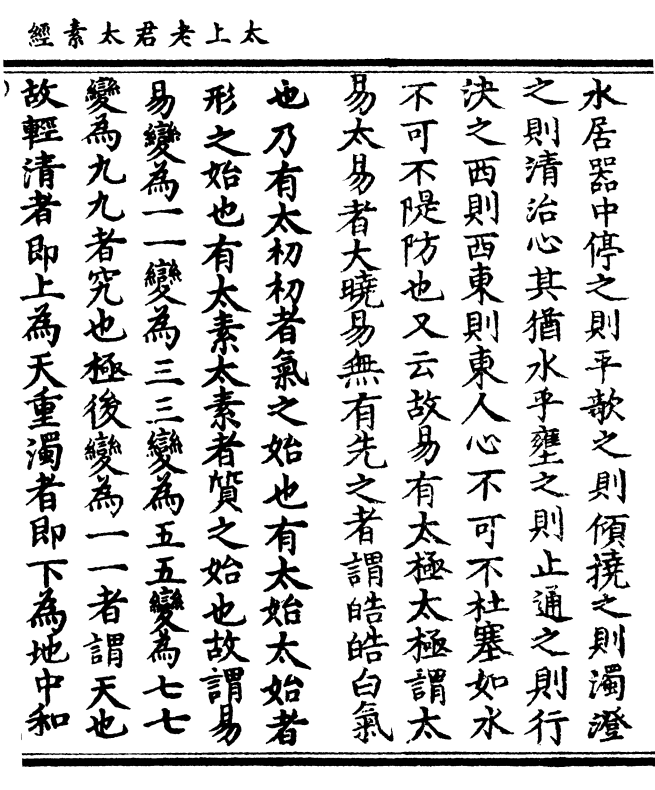 太上老君太素經
水居器中停之則平歌之則傾撓之則濁澄
之則清治心其猶水乎壅之則止通之則行
決之西則西東則東人心不可不杜塞如水
不可不隄防也又云故易有太極太極謂太
易太易者大曉易無有先之者謂皓皓白氣
也乃有太初初者氣之始也有太始太始者
形之始也有太素太素者質之始也故謂易
易變為一一變為三三變為五五變為七七
變為九九者究也極後變為一一者謂天也
故輕清者即上為天重濁者即下為地中和